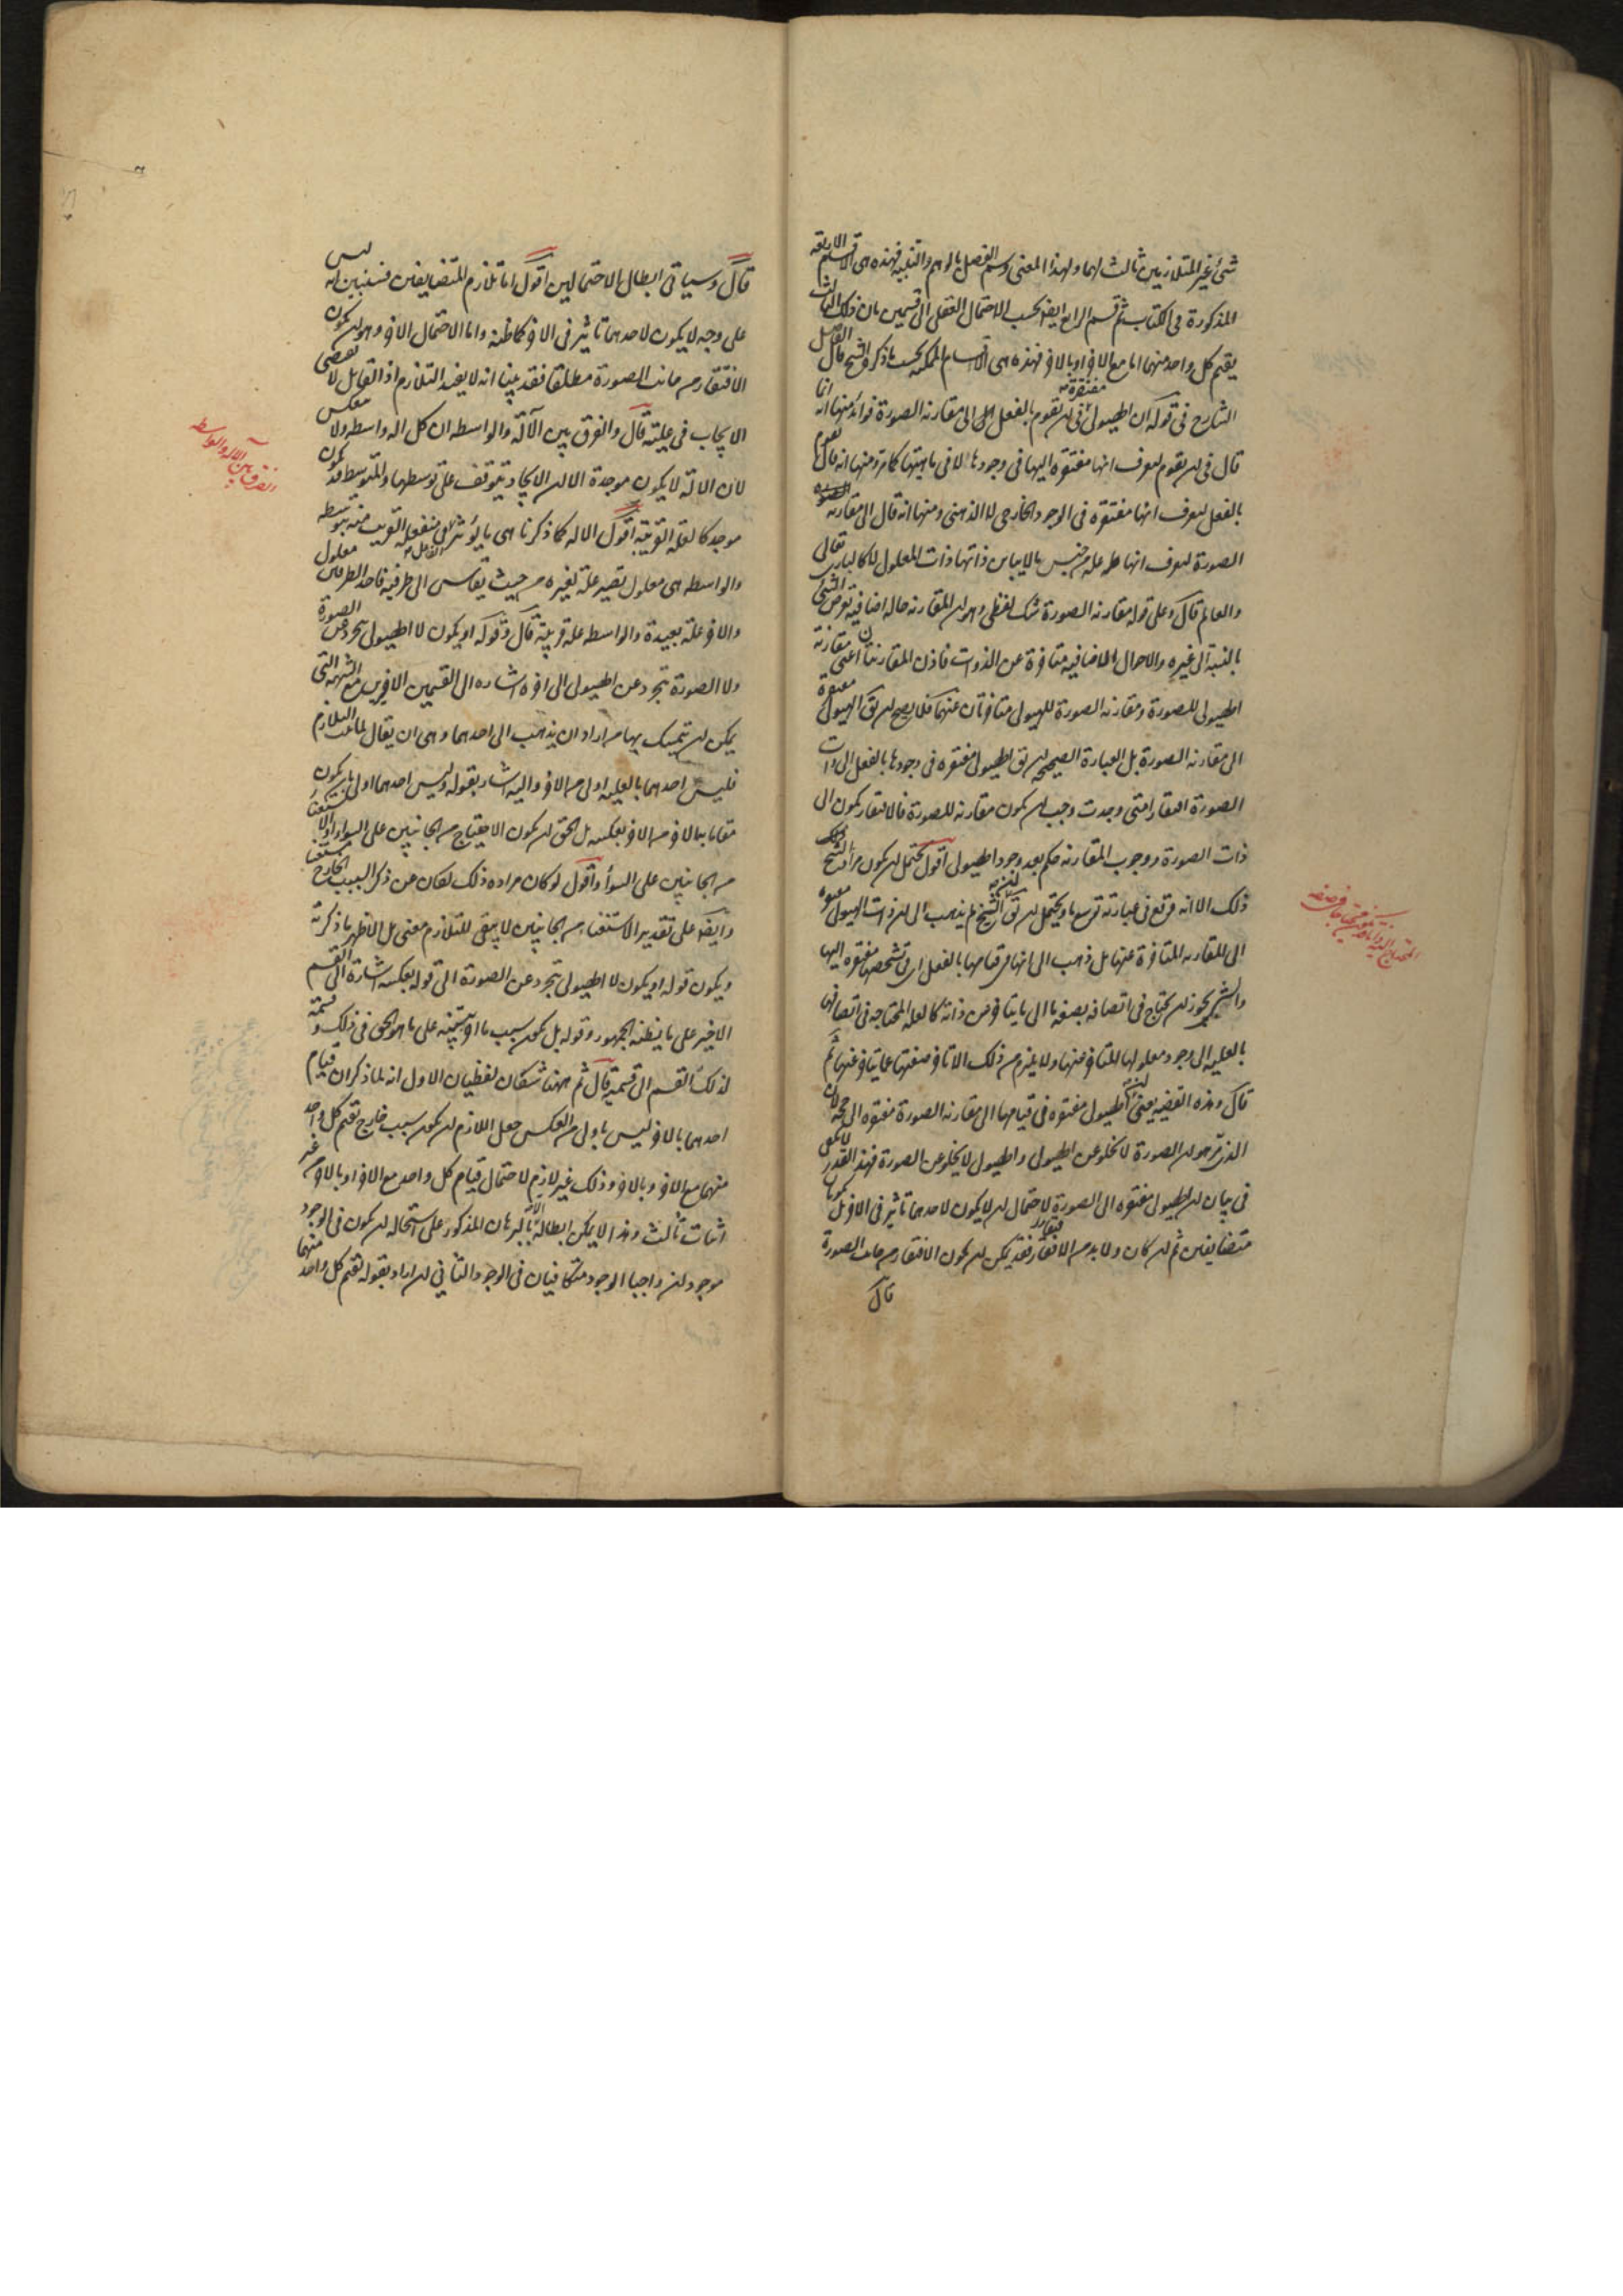 شئ غير المتلازمين ثالث لهما ولهذا المعنى وسم الفصل بالوهم والتنبيه فهذه هى الاقسام الاربعة
المذكورة فى الكتاب ثم قسم الرابع ايضا بحسب الاحتمال العقلى الى قسمين بان ذلك الثالث
يقيم كل واحد منهما اما مع الاخر او بالاخر فهذه هى الاقسام الممكنة بحسب ما ذكره الشيخ قال الفاضل
الشارح فى قوله ان الهيولى مفتقرة فى ان تقوم بالفعل الى مقارنة الصورة فوائد منها انه انما
قال فى ان تقوم ليعرف انها مفتقرة اليها فى وجودها لا فى ماهيتها كما مر ومنها انه قال تقوم
بالفعل ليعرف انها مفتقرة فى الوجود الخارجى لا الذهنى ومنها انه قال الى مقارنة
الصورة ليعرف انها علة من جنس ما لا يباين ذاتها ذات المعلول لا كالبارى تعالى
والعالم قال وعلى قوله مقارنة الصورة شك لفظى وهو ان المقارنة حالة اضافية تعرض الشئ
بالنسبة الى غيره والاحوال الاضافية متاخرة عن الذوات فاذن المقارنتان اعنى مقارنة
الهيولى للصورة ومقارنة الصورة للهيولى متاخرتان عنهما فلا يصح ان يق الهيولى مفتقرة
الى مقارنة الصورة بل العبارة الصحيحة ان يق الهيولى مفتقرة فى وجودها بالفعل الى ذات
الصورة افتقارا متى وجدت وجب ان يكون مقارنة للصورة فالافتقار يكون الى
ذات الصورة ووجوب المقارنة حكم بعد وجود الهيولى اقول يحتمل ان يكون مراد الشيخ ذلك
ذلك الا انه وقع فى عبارته توسع ما ويحتمل ان يق ان الشيخ لم يذهب الى ان ذات الهيولى مفتقرة
الى المقارنة المتاخرة عنها بل ذهب الى انها فى قيامها بالفعل اى فى تشخصها مفتقرة اليها
والشئ يجوز ان يحتاج فى اتصافه بصفة ما الى ما يتاخر عن ذاته كالعلة المحتاجة فى اتصافها
بالعلية الى وجود معلولها المتاخر عنها ولا يلزم من ذلك الا تاخر صفتها عما يتاخر عنها ثم
قال وهذه القضية يعنى ان الهيولى مفتقرة فى قيامها الى مقارنة الصورة مفتقرة الى حجة لان
الذى مر هو ان الصورة لا تخلو عن الهيولى والهيولى لا تخلو عن الصورة فهذا القدر لا يكفى
فى بيان ان الهيولى مفتقرة الى الصورة لاحتمال ان لا يكون لاحدهما تاثير فى الاخر بل كونهما
متضايفين ثم ان كان ولا بد من الافتقار فقد يمكن ان يكون الافتقار من جانب الصورة
قال
قال وسياتى ابطال الاحتمالين اقول اما تلازم المتضايفين فسنبين انه ليس
على وجه لا يكون لاحدهما تاثير فى الاخر كما ظنه واما الاحتمال الاخر وهو ان يكون
الافتقار من جانب الصورة مطلقا فقد بينا انه لا يفيد التلازم اذ القابل لا يقتضى
الايجاب فى علية قال والفرق بين الآلة والواسطة ان كل الة واسطة ولا ينعكس
لان الالة لا يكون موجدة الا ان الايجاد يتوقف على توسطها والمتوسط قد يكون
موجدا كالعلة القريبة اقول الالة كما ذكرنا هى ما يؤثر الفاعل فى منفعله القريب منه بتوسطه
والواسطة هى معلول تصير علة لغيره من حيث تقاس الى طرفيه فاحد الطرفين معلول
والاخر علة بعيدة والواسطة علة قريبة قال وقوله او يكون لا الهيولى تتجرد عن الصورة
ولا الصورة تتجرد عن الهيولى الى اخره اشارة الى القسمين الاخيرين مع الشبهة التى
يمكن ان يتمسك بها من اراد ان يذهب الى احدهما وهى ان يقال لما ثبت التلازم
فليس احدهما بالعلية اولى من الاخر واليه اشار بقوله وليس احدهما اولى بان يكون
مقاما به الاخر من الاخر بعكسه بل الحق ان يكون الاحتياج من الجانبين على السواء او الاستغناء
من الجانبين على السواء واقول لو كان مراده ذلك لكان عن ذكر السبب الخارج مستغنيا
وايضا على تقدير الاستغناء من الجانبين لا يبقى للتلازم معنى بل الاظهر ما ذكرته
ويكون قوله او يكون لا الهيولى تتجرد عن الصورة الى قوله بعكسه اشارة الى القسم
الاخير على ما يظنه الجمهور وقوله بل يكون سبب ما اخر تنبيه على ما هو الحق فى ذلك وقسمته
لذلك القسم الى قسميه قال ثم ههنا شكان لفظيان الاول انه لما ذكر ان قيام
احدهما بالاخر ليس باولى من العكس جعل اللازم ان يكون سبب خارج يقيم كل واحد
منهما مع الاخر وبالاخر وذلك غير لازم لاحتمال قيام كل واحد مع الاخر او بالاخر من غير
اثبات ثالث وهذا لا يمكن ابطاله الا بالبرهان المذكور على استحالة ان يكون فى الوجود
موجودان واجبا الوجود متكافيان فى الوجود الثانى ان اراد بقوله يقيم كل واحد منهما
الفرق بين الآلة والواسطة